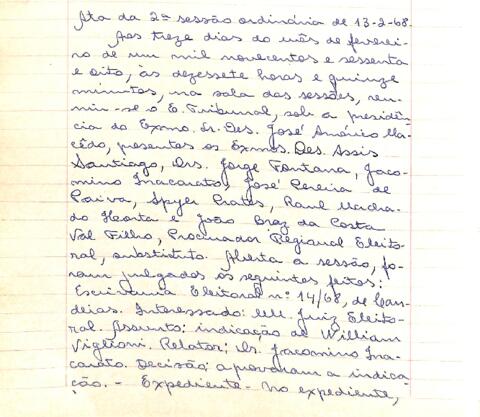 Ata da 2ª sessão ordinária de 13-2-68.
Aos treze dias do mês de feverei-
ro de um mil novecentos e sessenta
e oito, às dezessete horas e quinze
minutos, na sala das sessões, reu-
niu-se o E. Tribunal, sob a presidên-
cia do Exmo. Sr. Des. José Américo Ma-
cêdo, presentes os Exmos. Des. Assis
Santiago, Drs. Jorge Fontana, Jaco-
mino Inacarato, José Pereira de
Paiva, Spyer Prates, Raul Macha-
do Horta e João Braz da Costa
Val Filho, Procurador Regional Eleito-
ral, substituto. Aberta a sessão, fo-
ram julgados os seguintes feitos:
Escrivania Eleitoral nº 14/68, de Can-
deias. Interessado: MM. Juiz Eleito-
ral. Assunto: indicação de William
Viglioni. Relator: Dr. Jacomino Ina-
carato. Decisão: aprovaram a indica-
ção. - Expediente - No expediente,